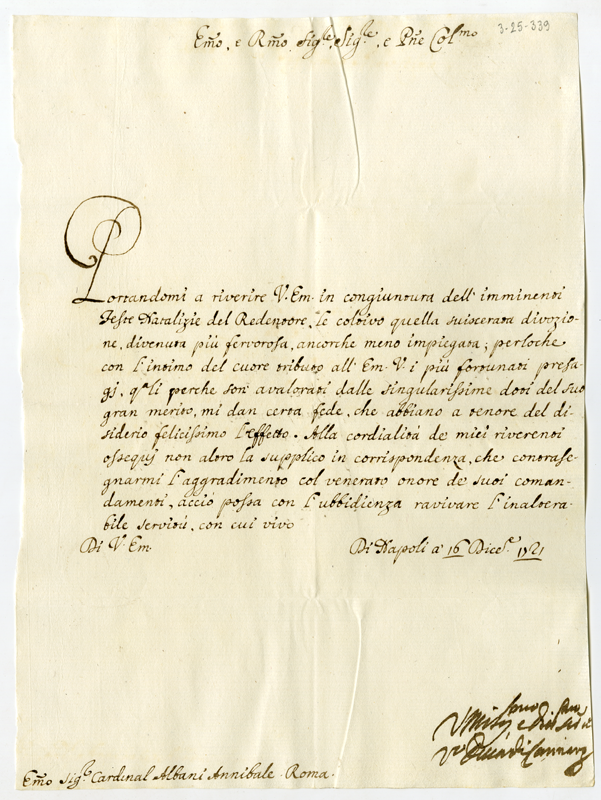 3-25-339
Em̃o, e Rm̃o Sig.re, Sig.re, e Pñe Col.mo
Portandomi a riverire V. Em. in congiuntura dell' imminenti
Feste Natalizie del Redentore, le coltivo quella suiscerata divozio-
ne, divenuta più fervorosa, ancorche meno impiegata; perloche
con l'intimo del cuore tributo all' Em. V. i più fortunati presa-
gj, q.li perche son' avalorati dalle singularissime doti del suo
gran merito, mi dan certa fede, che abbiano a tenore del di-
siderio felicissimo l'effetto. Alla cordialità de' miei riverenti
ossequj non altro la supplico in corrispondenza, che contrase-
gnarmi l'aggradimento col venerato onore de' suoi coman-
damenti, acciò possa con l'ubbidienza ravivare l'inaltera-
bile servitù, con cui vivo
Di V. Em.
Di Napoli a' 16 Dice.e 1721
Em̃o Sig.re Cardinal Albani Annibale. Roma.